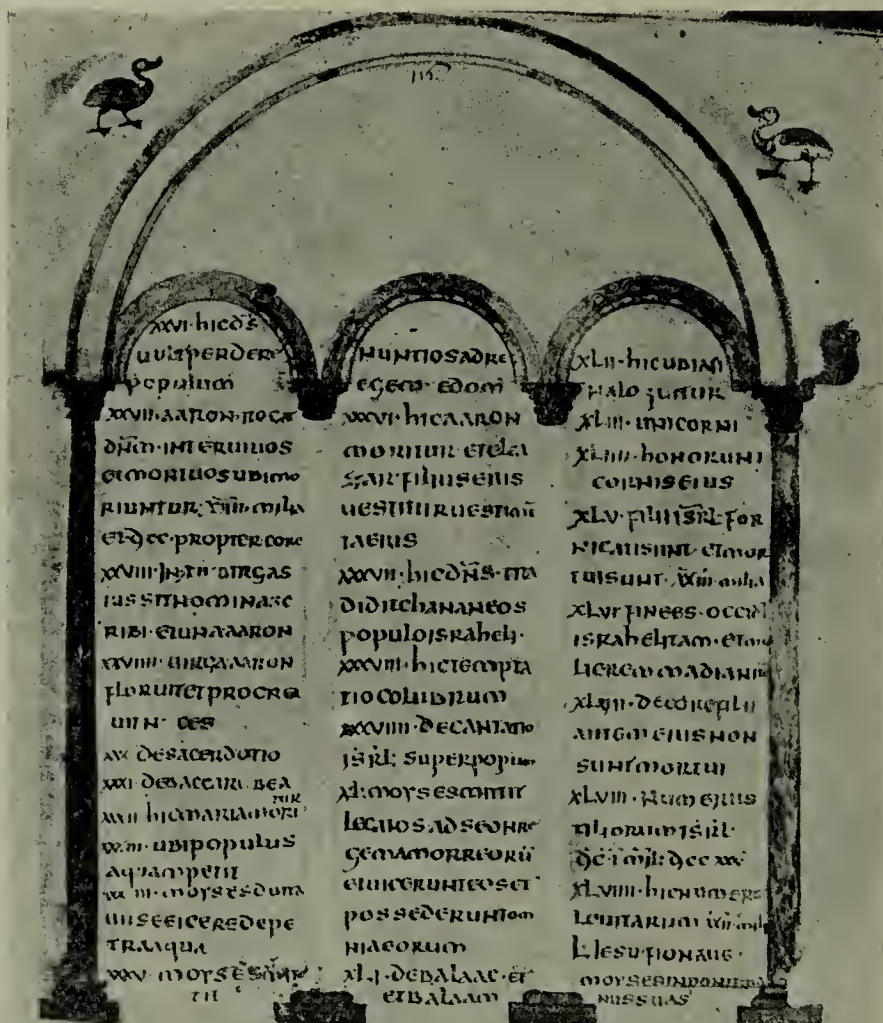 XXVI·hic d̅s̅
uult perdere
populum
XXVII·aaron·roga
dn̅m·inter uiuos
et mortuos ubi mo
riuntur·XIIII·milia
et dcc·propter core
XXVIII·uirgas
ius sit nominasc
ribi·et una aaron
XXVIIII·uirga aaron
floruit et procrea
uit n ces
XXX de sacerdotio
XXXI de uaccam
XXXII hic maria mori
tur
XXXIII·ubi populus
aquam petit
XXXIIII·moyses
eicere de pe
tra aqua
XXXV·moyses mit
tit
nuntios ad re
egem·edom
XXXVI·hic aaron
moritur et elea
zar filius eius
uestitur uestim̅
ta eius
XXXVII·hic dn̅s·tra
didit chananeos
populo israheli·
XXXVIII·hic tempta
tio colubrum
XXXVIIII·de cantatio
isrl̅· super
XL·moyses mittit
legatos ad seon re
gem amorreorū
eiucerunt eos et
possederunt om
nia eorum
XLI·de balaac·et
et balaam
XLII·hic ubi asi
na loquitur
XLIII·unicorni
XLIIII·honor uni
cornis eius
XLV·filii isrl̅·for
nicati sunt·et mor
tui sunt·XXIIII·milia
XLVI·finees·occid
israhelitam·et mu
lierem madianit
XLVII·de core filii
autem eius non
sunt mortui
XLVIII·numerus
filiorum isrl̅·
dc̅ i mil̅·dcc xxx
XLVIIII·hic numerus
leuitarum
L Iesu filio naue·
moyses inponit
nus suas